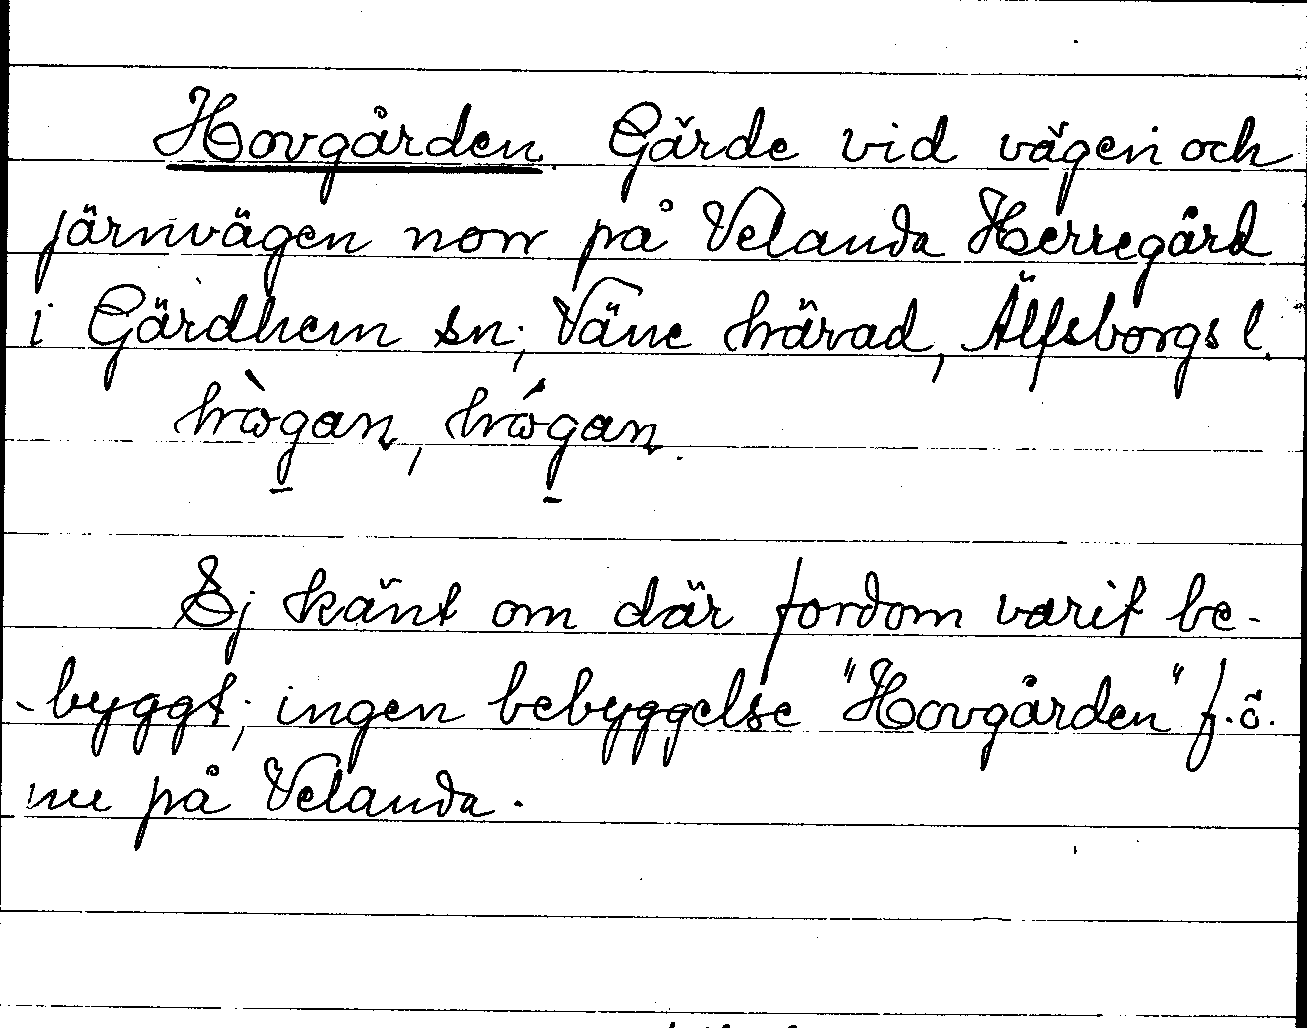 Hovgården. Gärde vid vägen och
järnvägen norr på Velanda Herregård
i Gärdhem sn, Väne härad, Älfsborgs l.
hògan, hógan.
Ej känt om där fordom varit be-
-byggt; ingen bebyggelse "Hovgården" f.ö.
nu på Velanda.